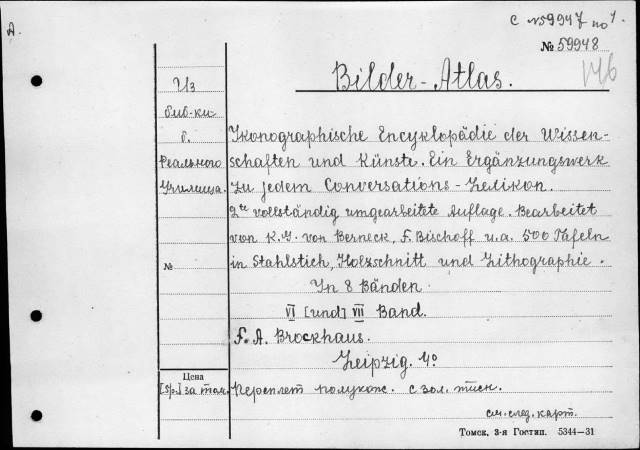 А.
С №59947 по 1.
№ 59948
146
Bilder-Atlas.
Из
биб-ки
б.
Реального
Училища.
Ikonographische Encyklopädie der Wissen-
schaften und Künste. Ein Ergänzungswerk
zu jedem Conversations-Lexikon.
2te vollständig umgearbeitete Auflage. Bearbeitet
von K. G. von Berneck, F. Bischoff u.a. 500 Tafeln
in Stahlstich, Holzschnitt und Lithographie.
In 8 Bänden.
VI [und] VII Band.
№
F. A. Brockhaus.
Leipzig. 4°
Цена
[5р.] за том.
Переплет полукож. с зол. тисн.
см. след. карт.
Томск, 3-я Гостип. 5344—31